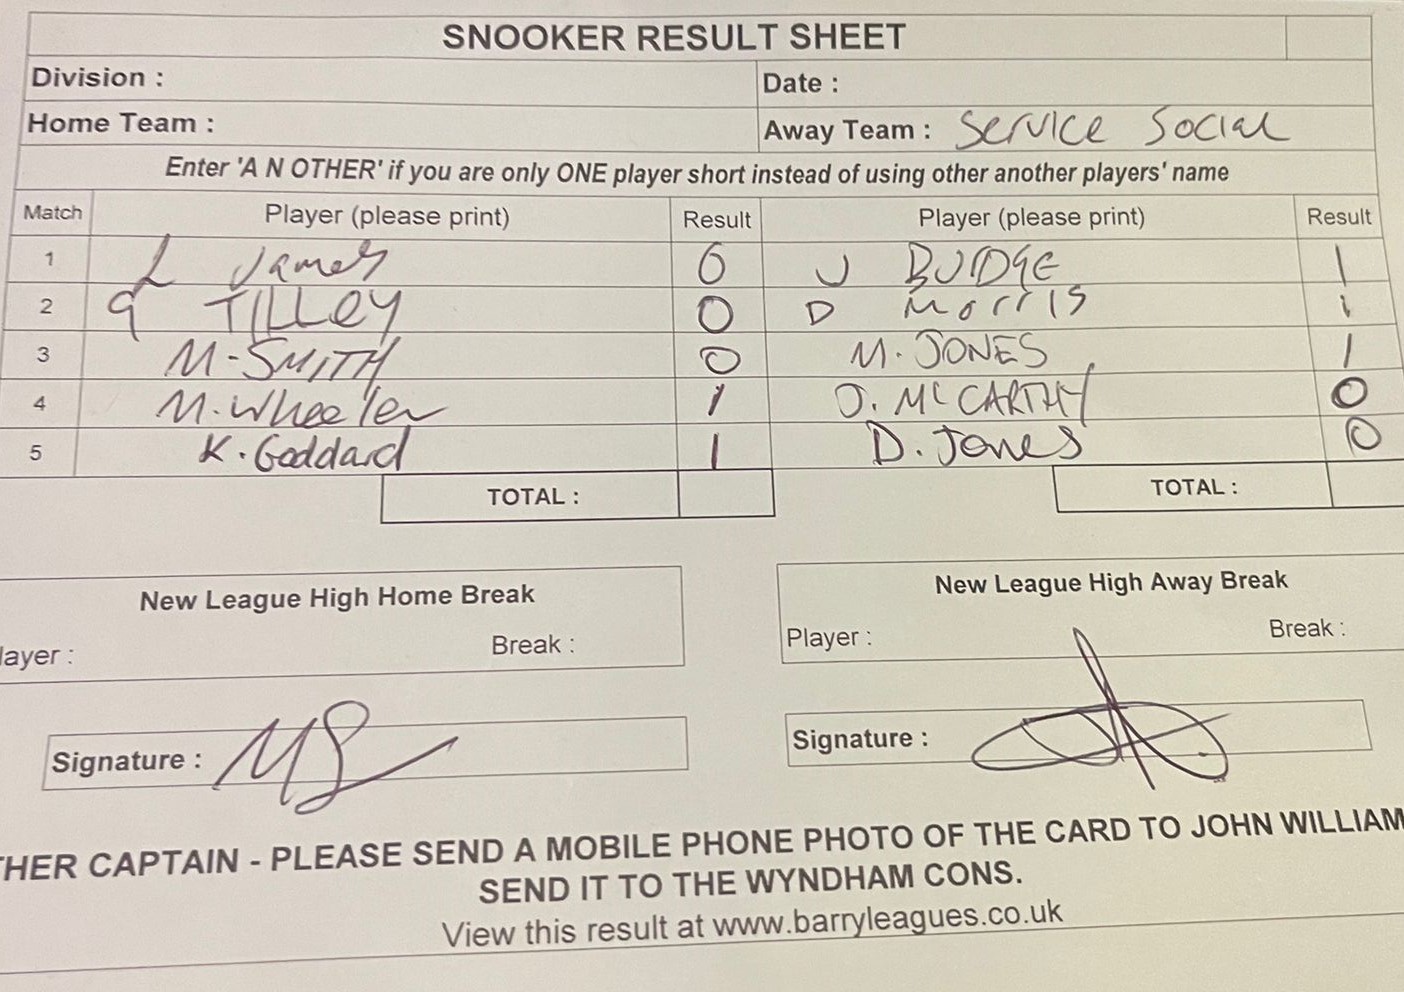 SNOOKER RESULT SHEET
Division :
Date :
Home Team :
Away Team : Service Social
Enter 'A N OTHER' if you are only ONE player short instead of using other another players' name
Match Player (please print) Result Player (please print) Result
1 L James 0 J BUDGE 1
2 G TILLEY 0 D Morris 1
3 M-SMITH 0 M. JONES 1
4 M. Wheeler 1 J. MCCARTHY 0
5 K. Goddard 1 D. Jones 0
TOTAL : TOTAL :
New League High Home Break
New League High Away Break
layer : Break :
Player : Break :
Signature : MS
Signature :
THER CAPTAIN - PLEASE SEND A MOBILE PHONE PHOTO OF THE CARD TO JOHN WILLIAM
SEND IT TO THE WYNDHAM CONS.
View this result at www.barryleagues.co.uk